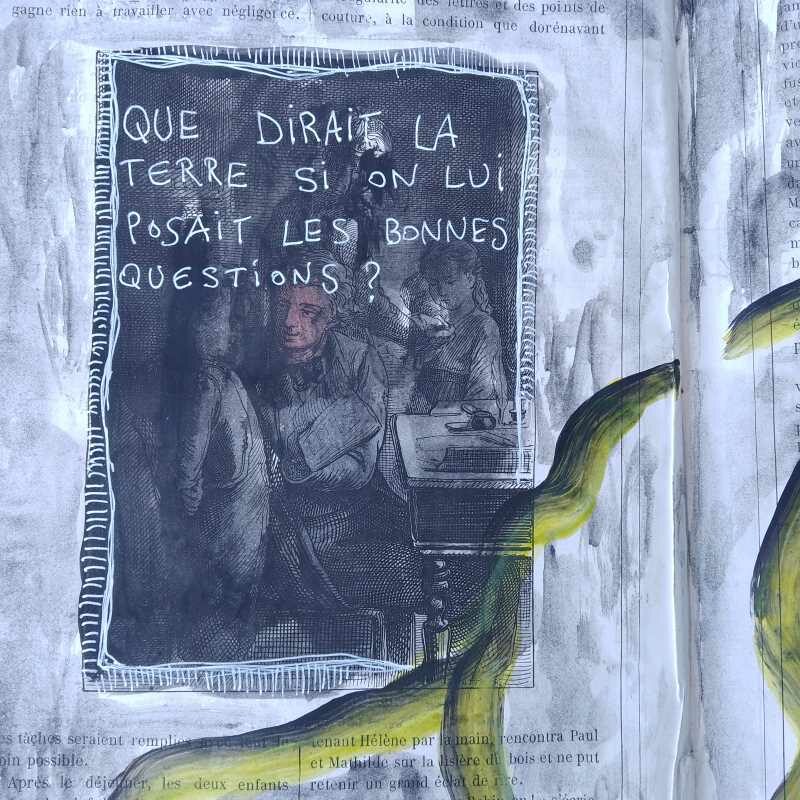 gagne rien à travailler avec négligence.
des lettres et des points de
couture, à la condition que dorénavant
QUE DIRAIT LA
TERRE SI ON LUI
POSAIT LES BONNES
QUESTIONS ?
tâches seraient remplies avec
possible.
Après le déjeuner, les deux enfants
tenant Hélène par la main, rencontra Paul
et Mathilde sur la lisière du bois et ne put
retenir un grand éclat de rire.